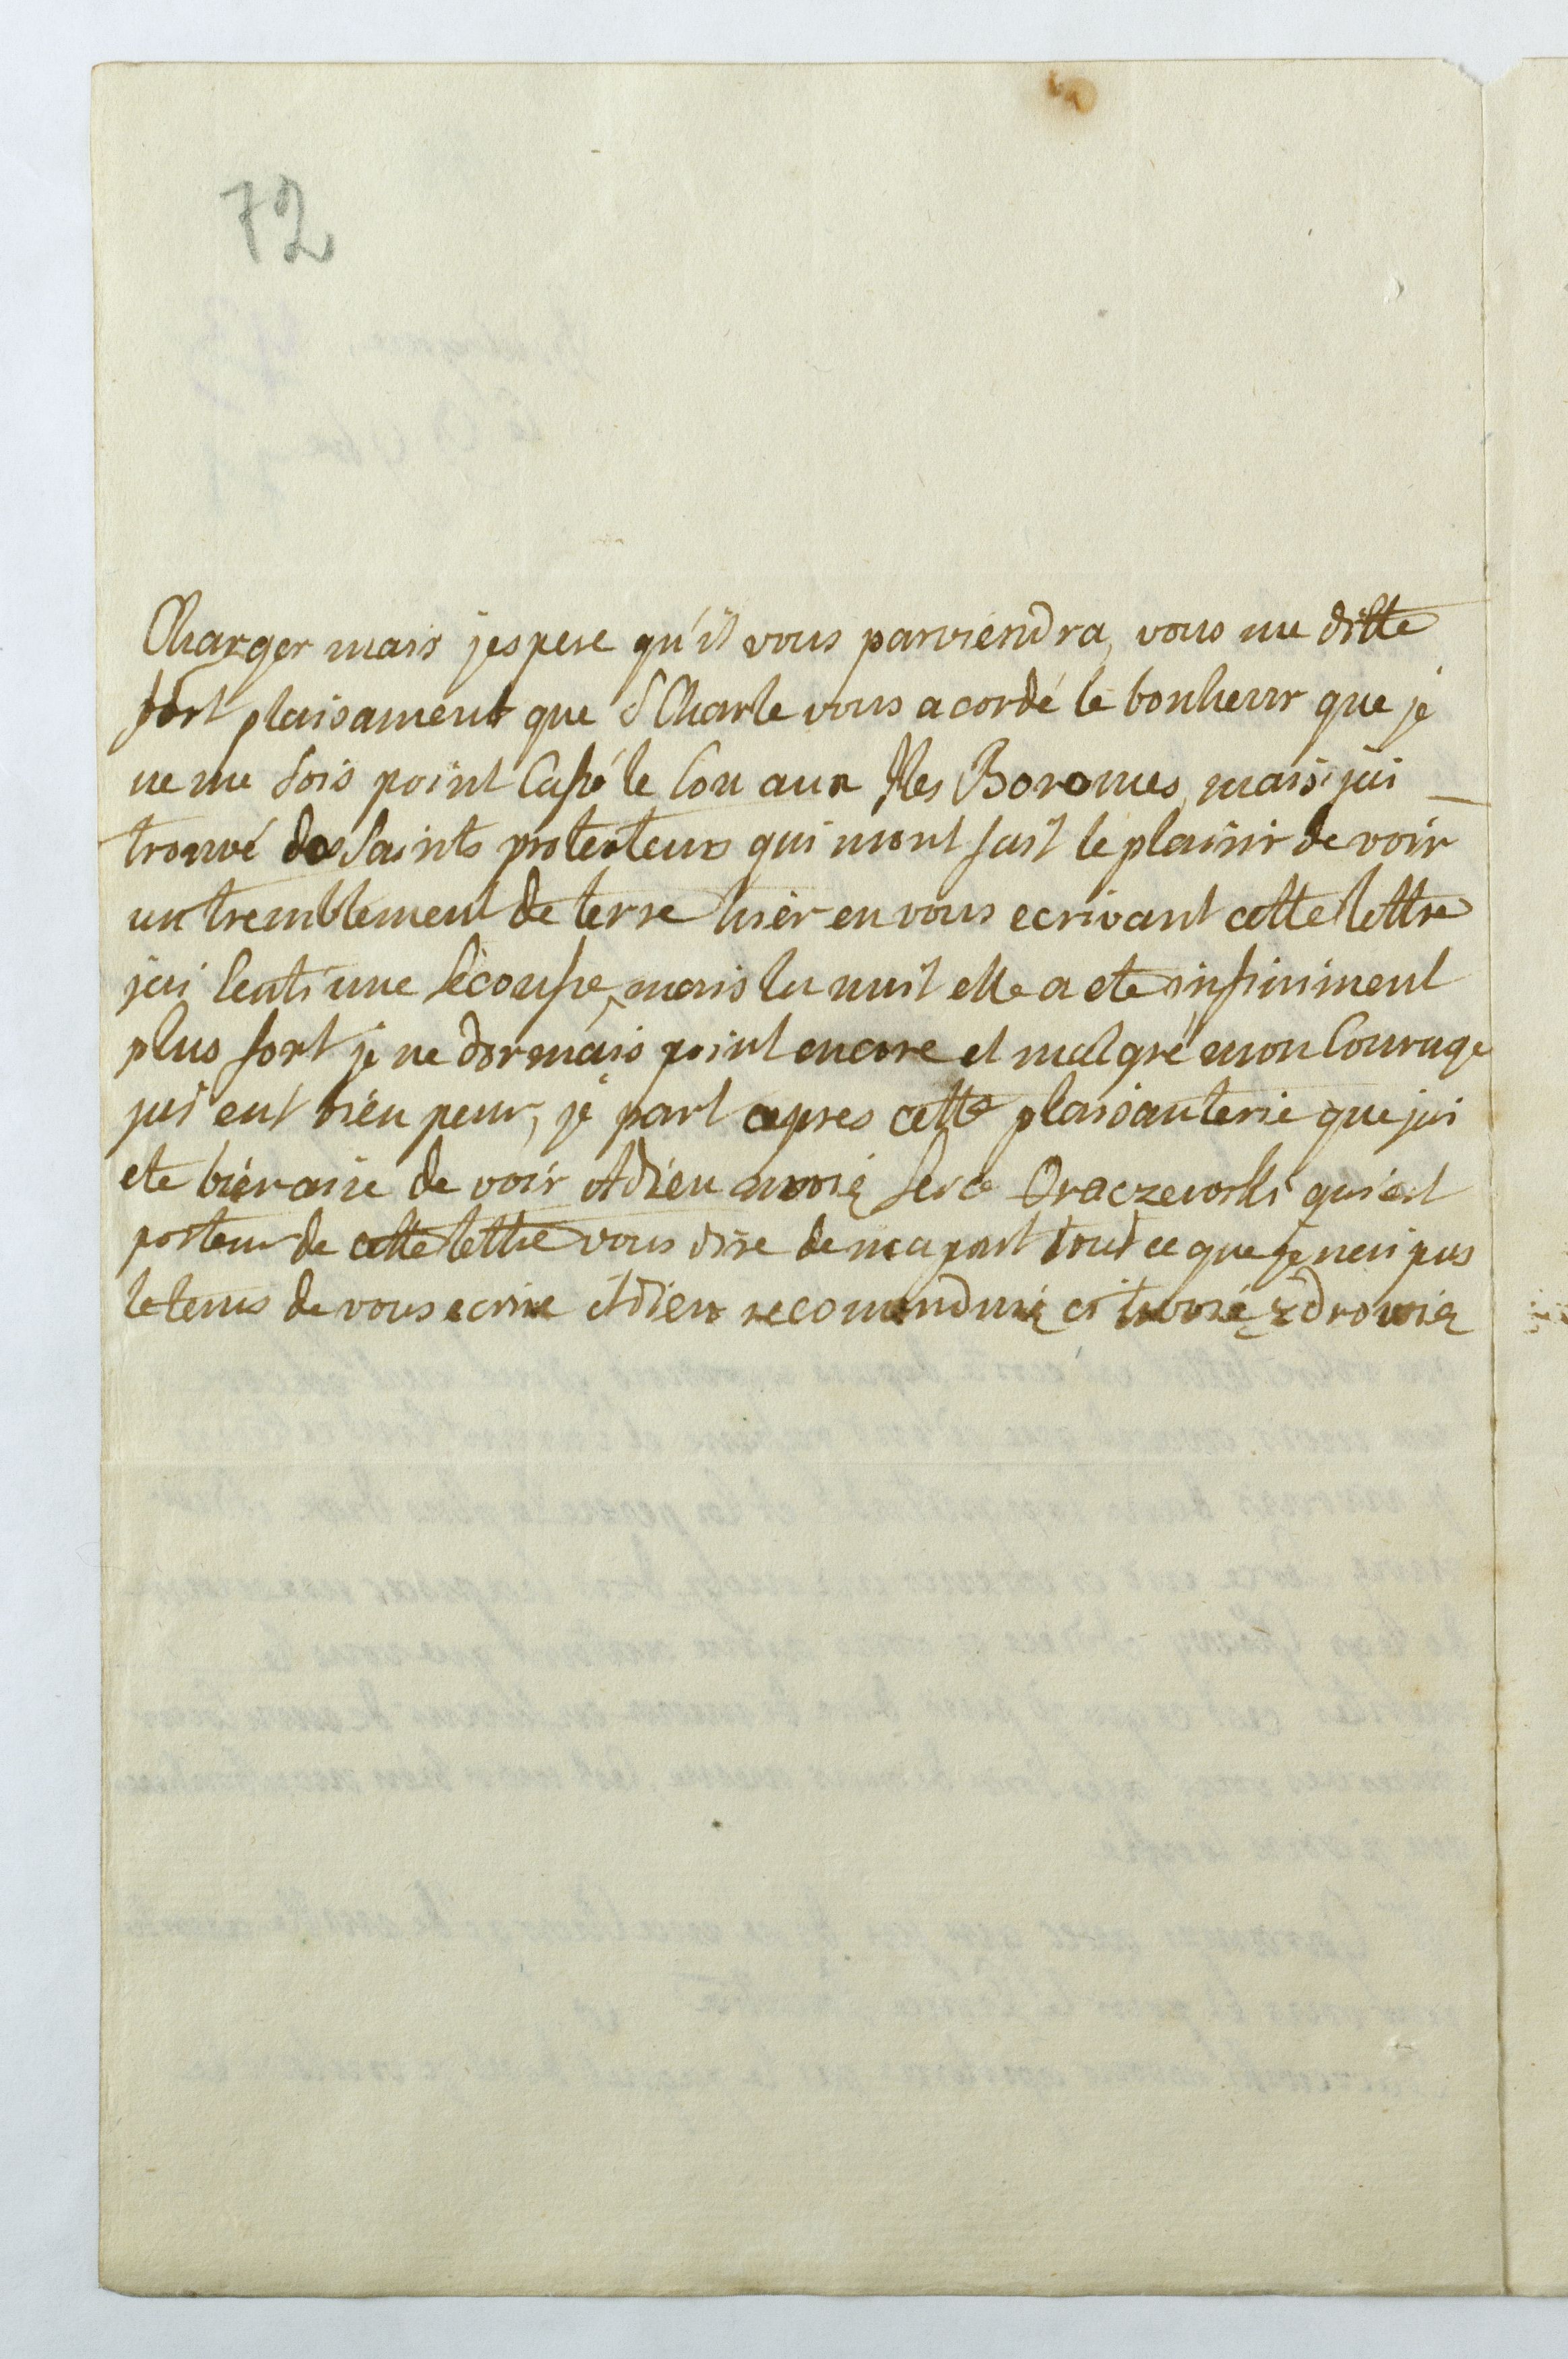 72
Charger mais jespere qu'il vous parviendra, vous me ditte
fort plaisament que S Charle vous acordé le bonheur que je
ne me sois point Cassé le Cou aux Iles Boromes, mais jai
trouvé des Saints protecteurs qui mont fait le plaisir de voir
un tremblement de terre hier en vous ecrivant cette lettre
jai senti une secousse, mais la nuit elle a ete infiniment
plus fort je ne dormais point encore et malgré mon Courage
jai eut bien peur, je part apres cette plaisanterie que jai
ete bienaise de voir Adieu moie serce Draczewski qui est
porteur de cette lettre vous dire de ma part tout ce que je nai pas
le tems de vous ecrire Adieu recomenduię ci twoie zdrowię